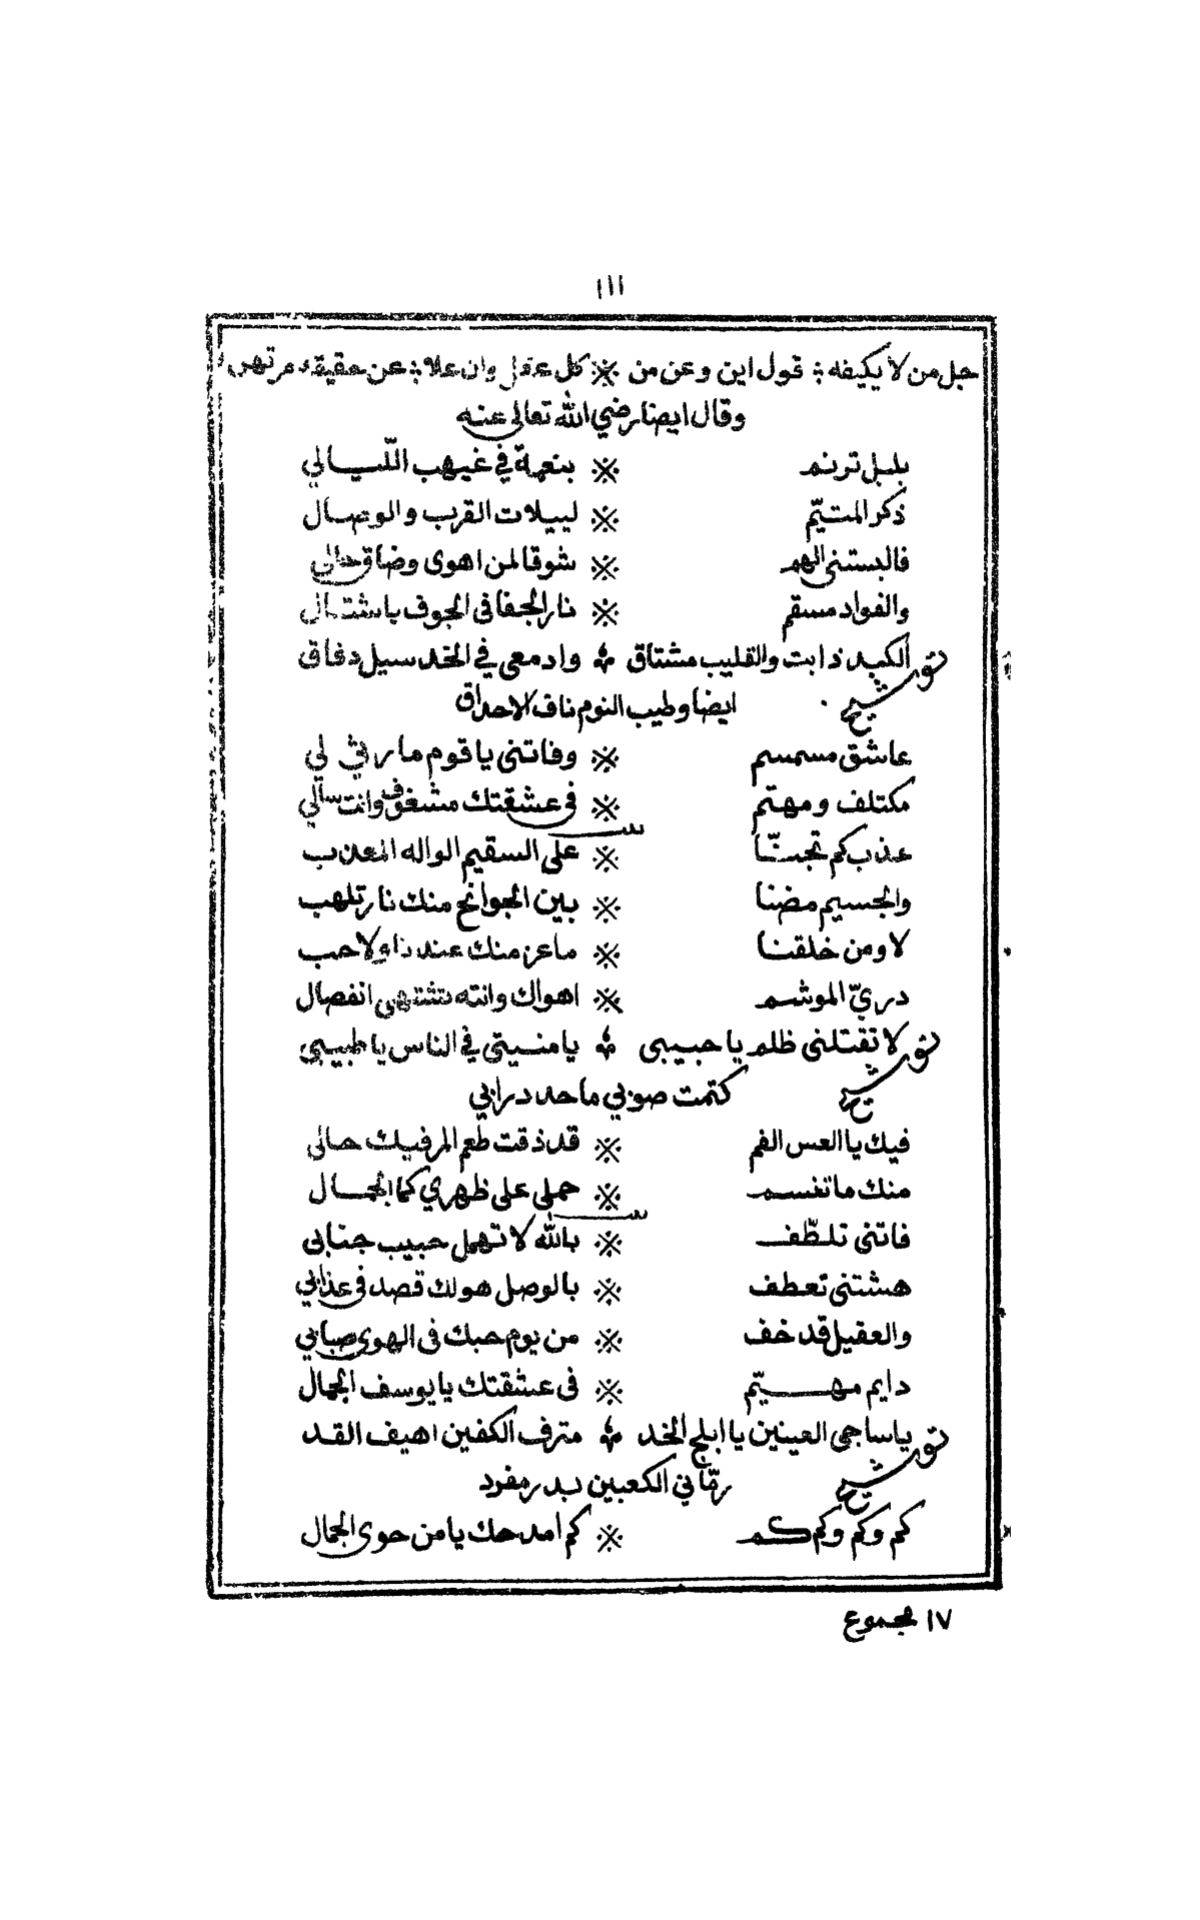 ١١١
جل من لا يكيفه ؛ قول اين وعن من ※ كل عقل وان علا ؛ عن حقيقه مرتهن
وقال ايضا رضي الله تعالى عنه
بلبل ترنم ※ بنغمة في غيهب اللّيالي
ذكر المتيّم ※ لييلات القرب والوصال
فالبستنى الهم ※ شوقا لمن اهوى وضاق حالي
والفواد مسقم ※ نار الجفا فى الجوف باشتعال
توشيح الكبد ذابت والقليب مشتاق ؞ وادمعي في الخد سيل دفاق
ايضا وطيب النوم ناف الاحداق
عاشق مسمسم ※ وفاتنى يا قوم ما رثى لي
مكتلف ومهتم ※ فى عشقتك مشغوف وانت سالي
عذب كم تجنّا ※ على السقيم الواله المعذب
والجسيم مضنا ※ بين الجوانح منك نار تلهب
لا ومن خلقنا ※ ما عز منك عندنا ولا حب
دريّ الموشم ※ اهواك وانته تشتهى انفصال
توشيح لا تقتلنى ظلم يا حبيبى ؞ يا منيتي في الناس يا طبيبي
كتمت صوبي ما حد درابي
فيك يا العس الفم ※ قد ذقت طعم المر فيك حالى
منك ما تفسم ※ حملى على ظهري كما الجمال
فاتنى تلطّف ※ بالله لا تهمل حبيب جنابى
هشتنى تعطف ※ بالوصل هولك قصد فى عذابي
والعقيل قد خف ※ من يوم حبك فى الهوى صبابي
دايم مهيّم ※ فى عشقتك يا يوسف الجمال
توشيح يا ساجى العينين يا ابلج الخد ؞ مترف الكفين اهيف القد
رمّاني الكعبين بدر مفرد
كم وكم وكم كم ※ كم امدحك يا من حوى الجمال
١٧ مجموع